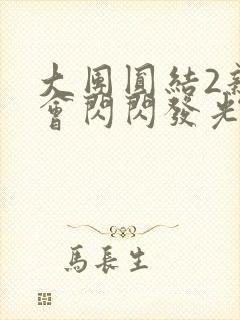 大團圓結2新
會閃閃發光
馬長生